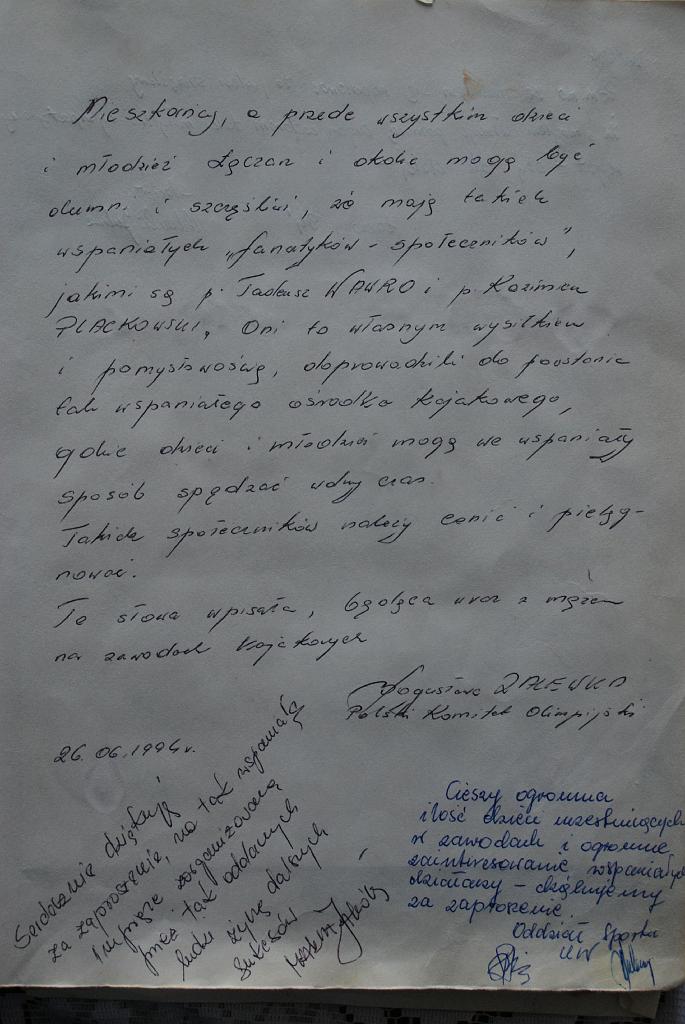 Mieszkańcy, a przede wszystkim dzieci
i młodzież Łączan i okolic mogą być
dumni i szczęśliwi, że mają takich
wspaniałych „fanatyków - społeczników",
jakimi są p. Tadeusz WAWRO i p. Kazimierz
PLACKOWSKI. Oni to własnym wysiłkiem
i pomysłowością, doprowadzili do powstania
tak wspaniałego ośrodka kajakowego,
gdzie dzieci i młodzież mogą we wspaniały
sposób spędzać wolny czas.
Takich społeczników należy cenić i pielęg-
nować.
Te słowa wpisała, będąca wraz z mężem
na zawodach kajakowych
Bogusława ZALEWSKA
Polski Komitet Olimpijski
26.06.1994r.
Serdecznie dziękuję
za zaproszenie, na tak wspaniałą
imprezę zorganizowaną
przez tak oddanych
ludzi życzę dalszych
sukcesów
Cieszy ogromna
ilość dzieci uczestniczących
w zawodach i ogromne
zainteresowanie wspaniałych
działaczy - dziękujemy
za zaproszenie.
Oddział Sportu
UW